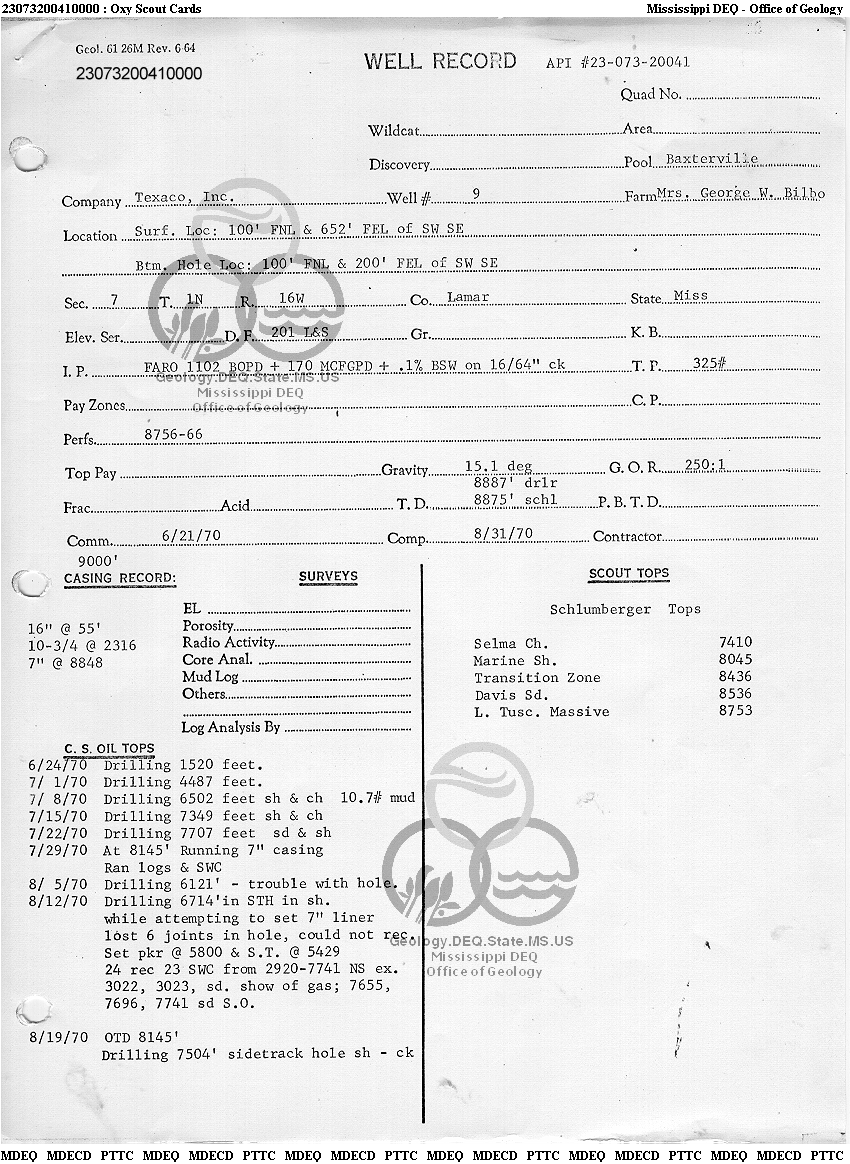 23073200410000 : Oxy Scout Cards Mississippi DEQ - Office of Geology
Geol. 61 26M Rev. 6-64
23073200410000
WELL RECORD API #23-073-20041
Quad No.
Wildcat Area
Discovery Pool Baxterville
Company Texaco, Inc. Well # 9 Farm Mrs. George W. Bilbo
Location Surf. Loc: 100' FNL & 652' FEL of SW SE
Btm. Hole Loc: 100' FNL & 200' FEL of SW SE
Sec. 7 T. 1N R. 16W Co. Lamar State Miss
Elev. Ser. D. F. 201 L&S Gr. K. B.
I. P. FARO 1102 BOPD + 170 MCFGPD + .1% BSW on 16/64" ck T. P. 325#
Geology.DEQ.State.MS.US
Mississippi DEQ
Office of Geology
Pay Zones C. P.
Perfs. 8756-66
Top Pay Gravity 15.1 deg G. O. R. 250:1
8887' drlr
Frac. Acid T. D. 8875' schl P. B. T. D.
Comm. 6/21/70 Comp. 8/31/70 Contractor
9000'
CASING RECORD: SURVEYS SCOUT TOPS
EL Schlumberger Tops
16" @ 55' Porosity
10-3/4 @ 2316 Radio Activity Selma Ch. 7410
7" @ 8848 Core Anal. Marine Sh. 8045
Mud Log Transition Zone 8436
Others Davis Sd. 8536
L. Tusc. Massive 8753
Log Analysis By
C. S. OIL TOPS
6/24/70 Drilling 1520 feet.
7/ 1/70 Drilling 4487 feet.
7/ 8/70 Drilling 6502 feet sh & ch 10.7# mud
7/15/70 Drilling 7349 feet sh & ch
7/22/70 Drilling 7707 feet sd & sh
7/29/70 At 8145' Running 7" casing
Ran logs & SWC
8/ 5/70 Drilling 6121' - trouble with hole.
8/12/70 Drilling 6714'in STH in sh.
while attempting to set 7" liner
lost 6 joints in hole, could not rec.
Set pkr @ 5800 & S.T. @ 5429
24 rec 23 SWC from 2920-7741 NS ex.
3022, 3023, sd. show of gas; 7655,
7696, 7741 sd S.O.
Geology.DEQ.State.MS.US
Mississippi DEQ
Office of Geology
8/19/70 OTD 8145'
Drilling 7504' sidetrack hole sh - ck
MDEQ MDECD PTTC MDEQ MDECD PTTC MDEQ MDECD PTTC MDEQ MDECD PTTC MDEQ MDECD PTTC MDEQ MDECD PTTC